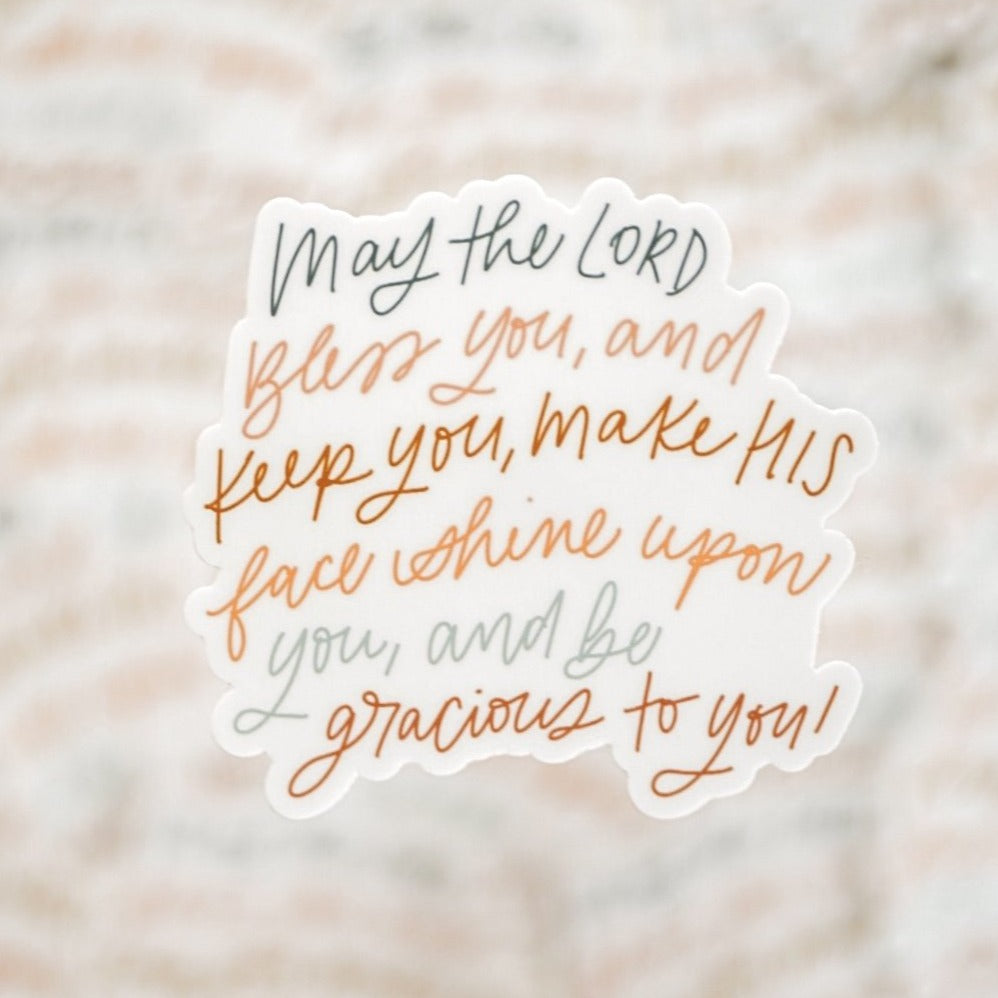 May the LORD
Bless you, and
keep you, make HIS
face shine upon
you, and be
gracious to you!